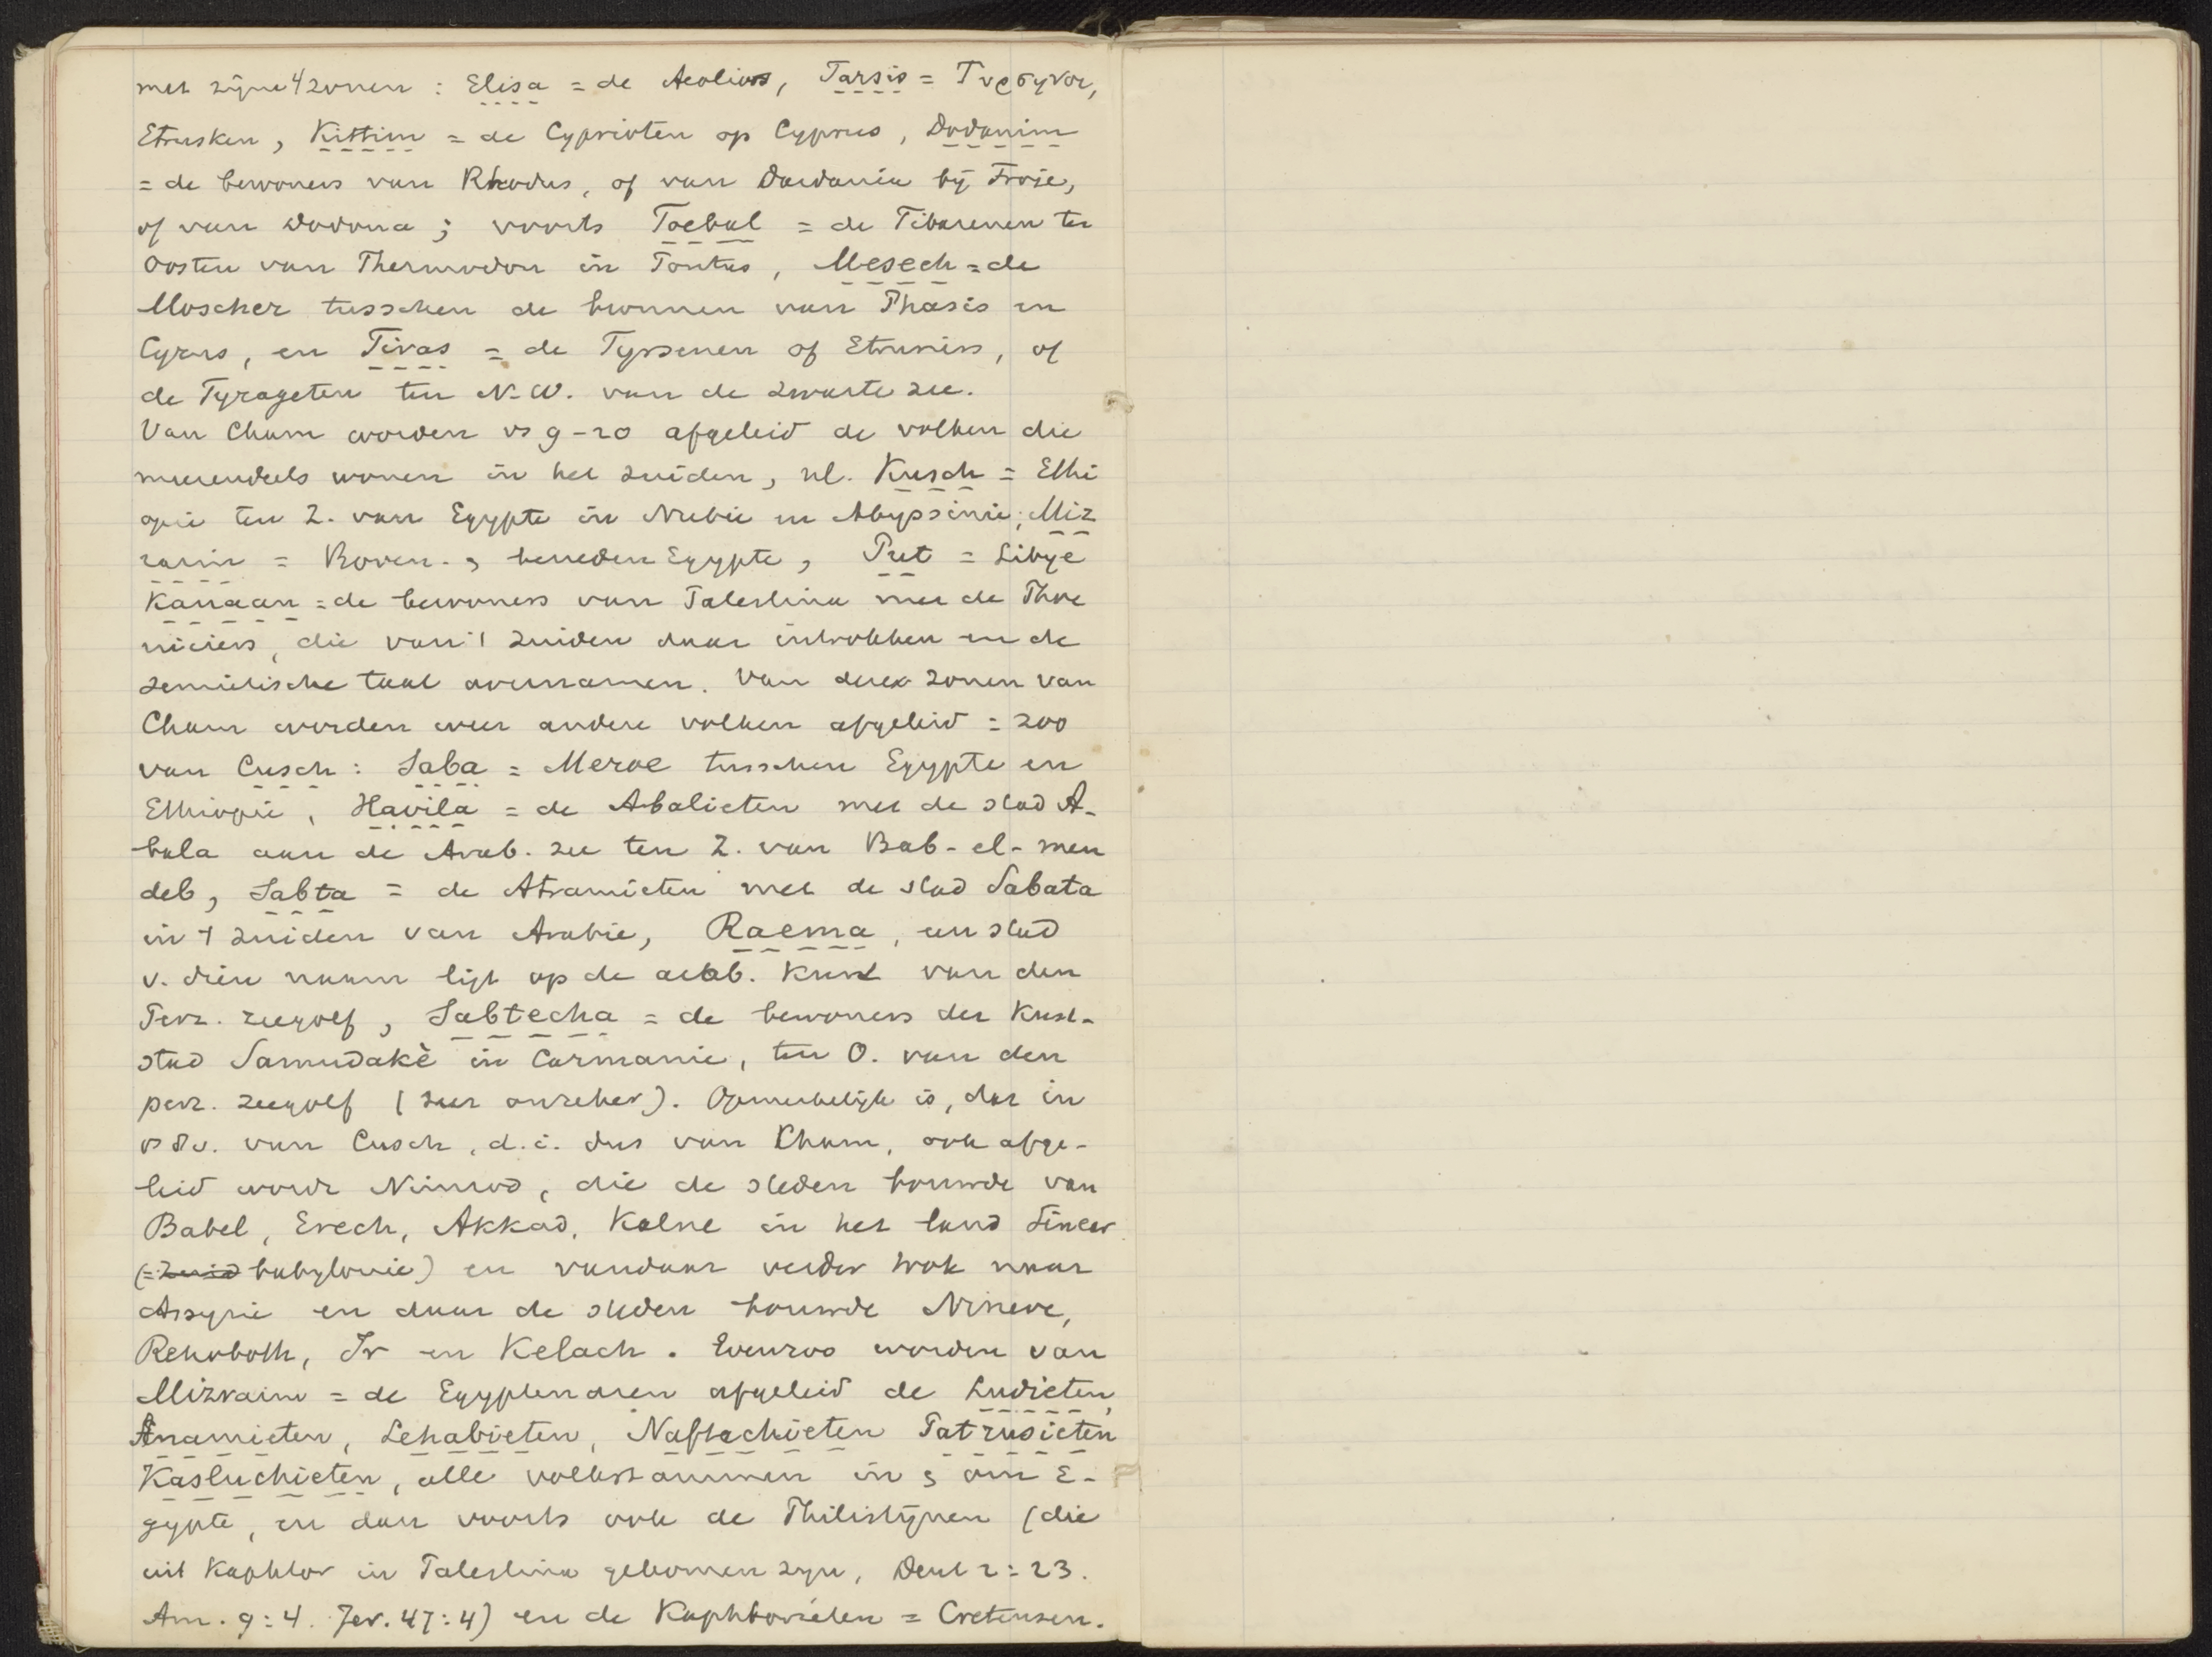 met zijne 4 zonen : Elisa = de Aeoliërs, Tarsis = Τυρσηνοι,
Etrusken, Kittim = de Cyprioten op Cyprus, Dodanim
= de bewoners van Rhodus, of van Dardania bij Troje,
of van Dodona ; voorts Toebal = de Tibarenen ten
Oosten van Thermodon in Pontus, Mesech = de
Moscher tusschen de bronnen van Phasis en
Cyrus, en Tiras = de Tyrsenen of Etruriers, of
de Tyrageten ten N.W. van de zwarte zee.
Van Cham worden vs 9-20 afgeleid de volken die
meerendeels wonen in het zuiden, nl. Kusch = Ethi
opie ten Z. van Egypte in Nubie en Abyssinie; Miz
raim = Boven- & beneden Egypte, Put = Libye
Kanaan = de bewoners van Palestina met de Phoe
niciers, die van 't zuiden daar introkken en de
semietische taal overnamen. Van deze zonen van
Cham worden weer andere volken afgeleid = zoo
van Cusch : Saba = Meroe tusschen Egypte en
Ethiopie, Havila = de Abalieten met de stad A-
bala aan de Arab. zee ten Z. van Bab-el-men
deb, Sabta = de Atramieten met de stad Sabata
in 't zuiden van Arabie, Raema, een stad
v. dien naam ligt op de arab. Kust van den
Perz. zeegolf, Sabtecha = de bewoners der Kust-
stad Samudakè in Carmanie, ten O. van den
perz. zeegolf (zeer onzeker). Opmerkelijk is, dat in
vs 8v. van Cusch, d.i. dus van Cham, ook afge-
leid wordt Nimrod, die de steden bouwde van
Babel, Erech, Akkad, Kalne in het land Sinear
(= Zuid babylonie) en vandaar verder trok naar
Assyrie en daar de steden bouwde Nineve,
Rehoboth, Ir en Kelach. Evenzoo worden van
Mizraim = de Egyptenaren afgeleid de Ludieten,
Anamieten, Lehabieten, Naftuchieten Patrusieten
Kasluchieten, alle volksstammen in & om E-
gypte, en dan voorts ook de Philistijnen (die
uit Kaphtor in Palestina gekomen zijn, Deut 2:23.
Am. 9:4. Jer. 47:4) en de Kaphtorieten = Cretensen.